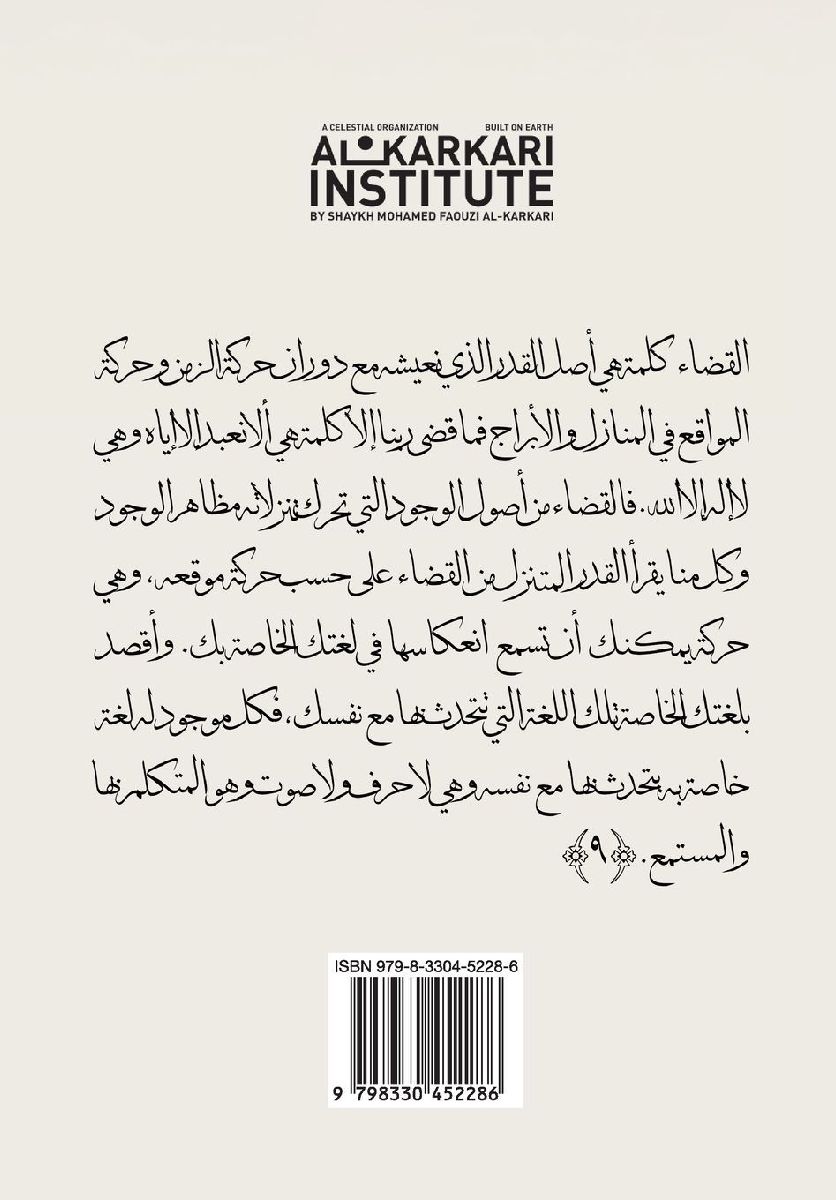 A CELESTIAL ORGANIZATION BUILT ON EARTH
AL KARKARI
INSTITUTE
BY SHAYKH MOHAMED FAOUZI AL-KARKARI
القضاء كلمة هي أصل القدر الذي نعيشه مع دوران حركة الزمن وحركة
المواقع في المنازل والأبراج فما قضى ربنا إلا كلمة هي ألا نعبد إلا إياه وهي
لا إله إلا الله. فالقضاء من أصول الوجود التي تحرك تنزلاته مظاهر الوجود
وكل منا يقرأ القدر المتنزل من القضاء على حسب حركة موقعه، وهي
حركة يمكنك أن تسمع انعكاسها في لغتك الخاصة بك. وأقصد
بلغتك الخاصة تلك اللغة التي تتحدث بها مع نفسك، فكل موجود له لغة
خاصة به يتحدث بها مع نفسه وهي لا حرف ولا صوت وهو المتكلم بها
والمستمع. ﴿٩﴾
ISBN 979-8-3304-5228-6
9 798330 452286